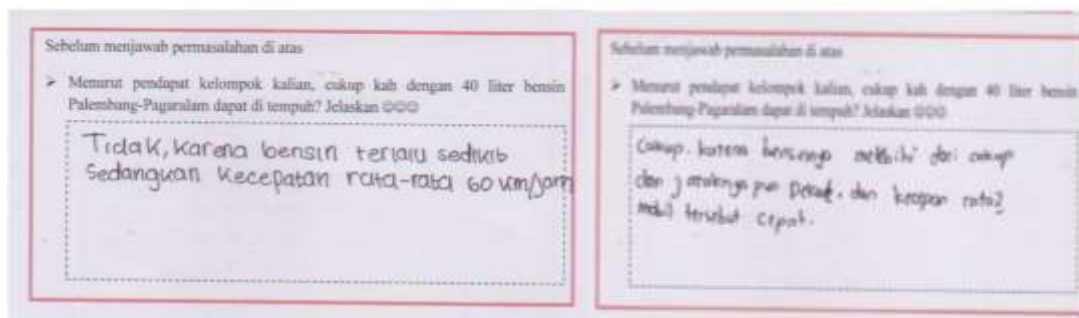 Sebelum menjawab permasalahan di atas
➢ Menurut pendapat kelompok kalian, cukup kah dengan 40 liter bensin
Palembang-Pagaralam dapat di tempuh? Jelaskan ☺☺☺
Tidak, Karena bensin terlalu sedikit
Sedangkan Kecepatan rata-rata 60 km/jam
Sebelum menjawab permasalahan di atas
➢ Menurut pendapat kelompok kalian, cukup kah dengan 40 liter bensin
Palembang-Pagaralam dapat di tempuh? Jelaskan ☺☺☺
Cukup. karena bensinnya melebihi dari cukup
dan jaraknya pun dekat. dan rata2
mobil tersebut cepat.